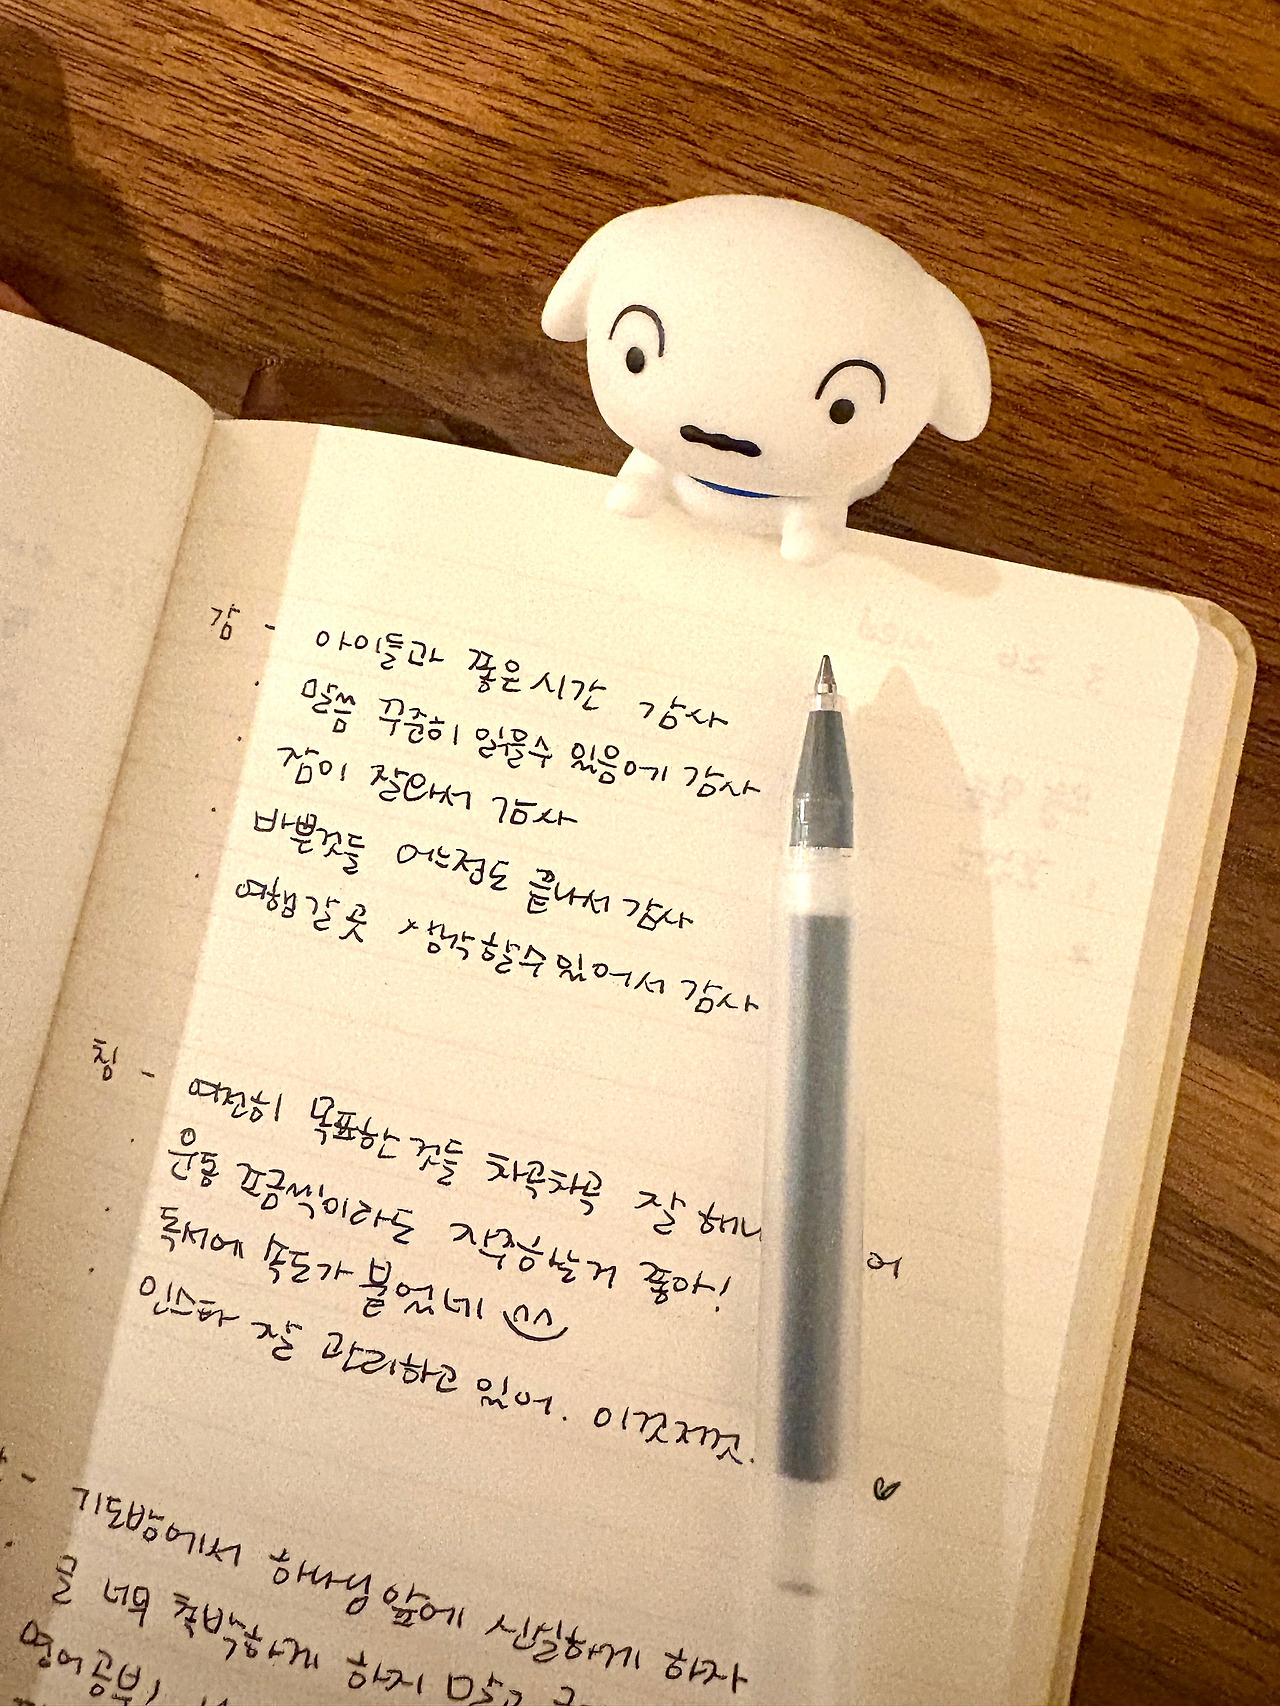 감 - 아이들과 좋은 시간 감사
· 말씀 꾸준히 읽을수 있음에 감사
· 잠이 잘와서 감사
· 바쁜것들 어느정도 끝나서 감사
· 여행갈 곳 생각할수있어서 감사
칭 - 여전히 목표한 것들 차곡차곡 잘 해 어
· 운동 조금씩이라도 자주하는거 좋아!
· 독서에 속도가 붙었네
· 인스타 잘 관리하고 있어. 이것저것.
- 기도방에서 하나님 앞에 신실하게 하자
· 물 너무 촉박하게 하지 말고
영어공부